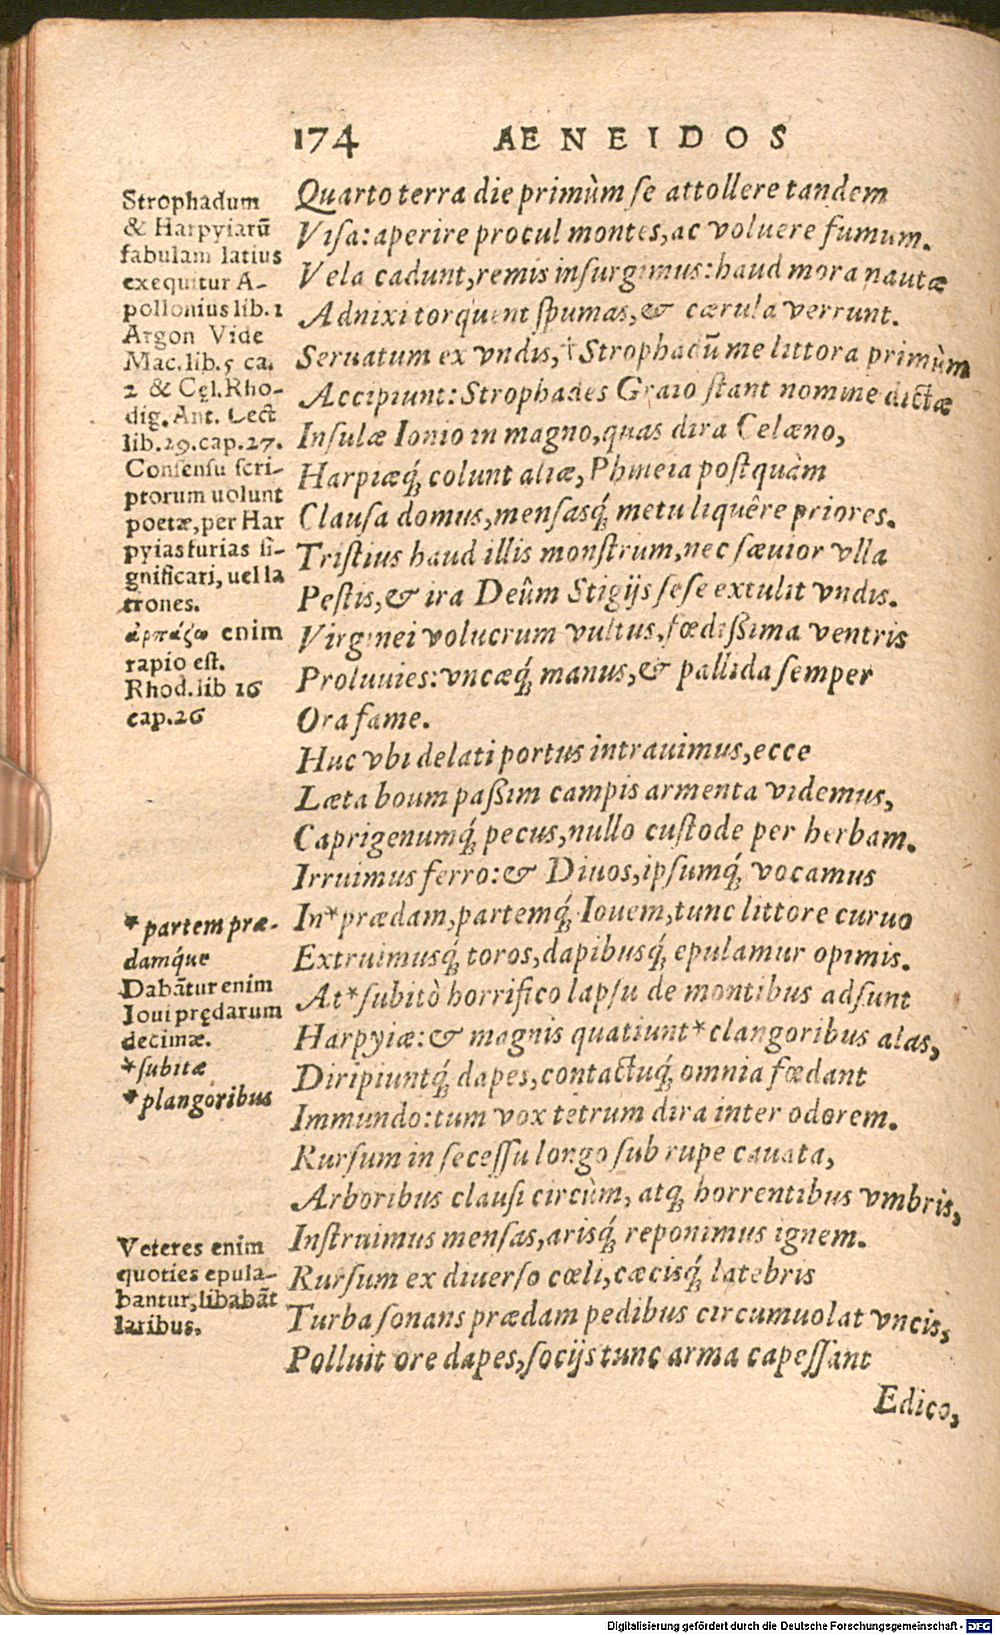 174 AENEIDOS
Strophadum
& Harpyiarū
fabulam latius
exequitur A-
pollonius lib. 1
Argon Vide
Mac. lib. 5 ca.
2 & Cęl. Rho-
dig. Ant. Lect
lib. 29. cap. 27.
Consensu scri-
ptorum uolunt
poetæ, per Har
pyias furias si-
gnificari, uel la
trones.
ἁρπάζω enim
rapio est.
Rhod. lib 16
cap. 26
Quarto terra die primùm se attollere tandem
Visa: aperire procul montes, ac voluere fumum.
Vela cadunt, remis insurgimus: haud mora nautæ
Adnixi torquent spumas, & cærula verrunt.
Seruatum ex vndis, †Strophadū me littora primùm
Accipiunt: Strophades Graio stant nomine dictæ
Insulæ Ionio in magno, quas dira Celæno,
Harpiæq́; colunt aliæ, Phineia postquàm
Clausa domus, mensasq́; metu liquêre priores.
Tristius haud illis monstrum, nec sæuior vlla
Pestis, & ira Deûm Stigijs sese extulit vndis.
Virginei volucrum vultus, fœdißima ventris
Proluuies: vncæq́; manus, & pallida semper
Ora fame.
Huc vbi delati portus intrauimus, ecce
Læta boum paßim campis armenta videmus,
Caprigenumq́; pecus, nullo custode per herbam.
Irruimus ferro: & Diuos, ipsumq́; vocamus
In *prædam, partemq́; Iouem, tunc littore curuo
Extruimusq́; toros, dapibusq́; epulamur opimis.
At *subitò horrifico lapsu de montibus adsunt
Harpyiæ: & magnis quatiunt *clangoribus alas,
Diripiuntq́; dapes, contactuq́; omnia fœdant
Immundo: tum vox tetrum dira inter odorem.
Rursum in secessu longo sub rupe cauata,
Arboribus clausi circùm, atq; horrentibus vmbris,
Instruimus mensas, arisq́; reponimus ignem.
Rursum ex diuerso cœli, cæcisq́; latebris
Turba sonans prædam pedibus circumuolat vncis,
Polluit ore dapes, socijs tunc arma capessant
*partem præ-
damq́ue
Dabātur enim
Ioui prędarum
decimæ.
*subitæ
*plangoribus
Veteres enim
quoties epula-
bantur, libabāt
laribus.
Edico,
Digitalisierung gefördert durch die Deutsche Forschungsgemeinschaft - DFG